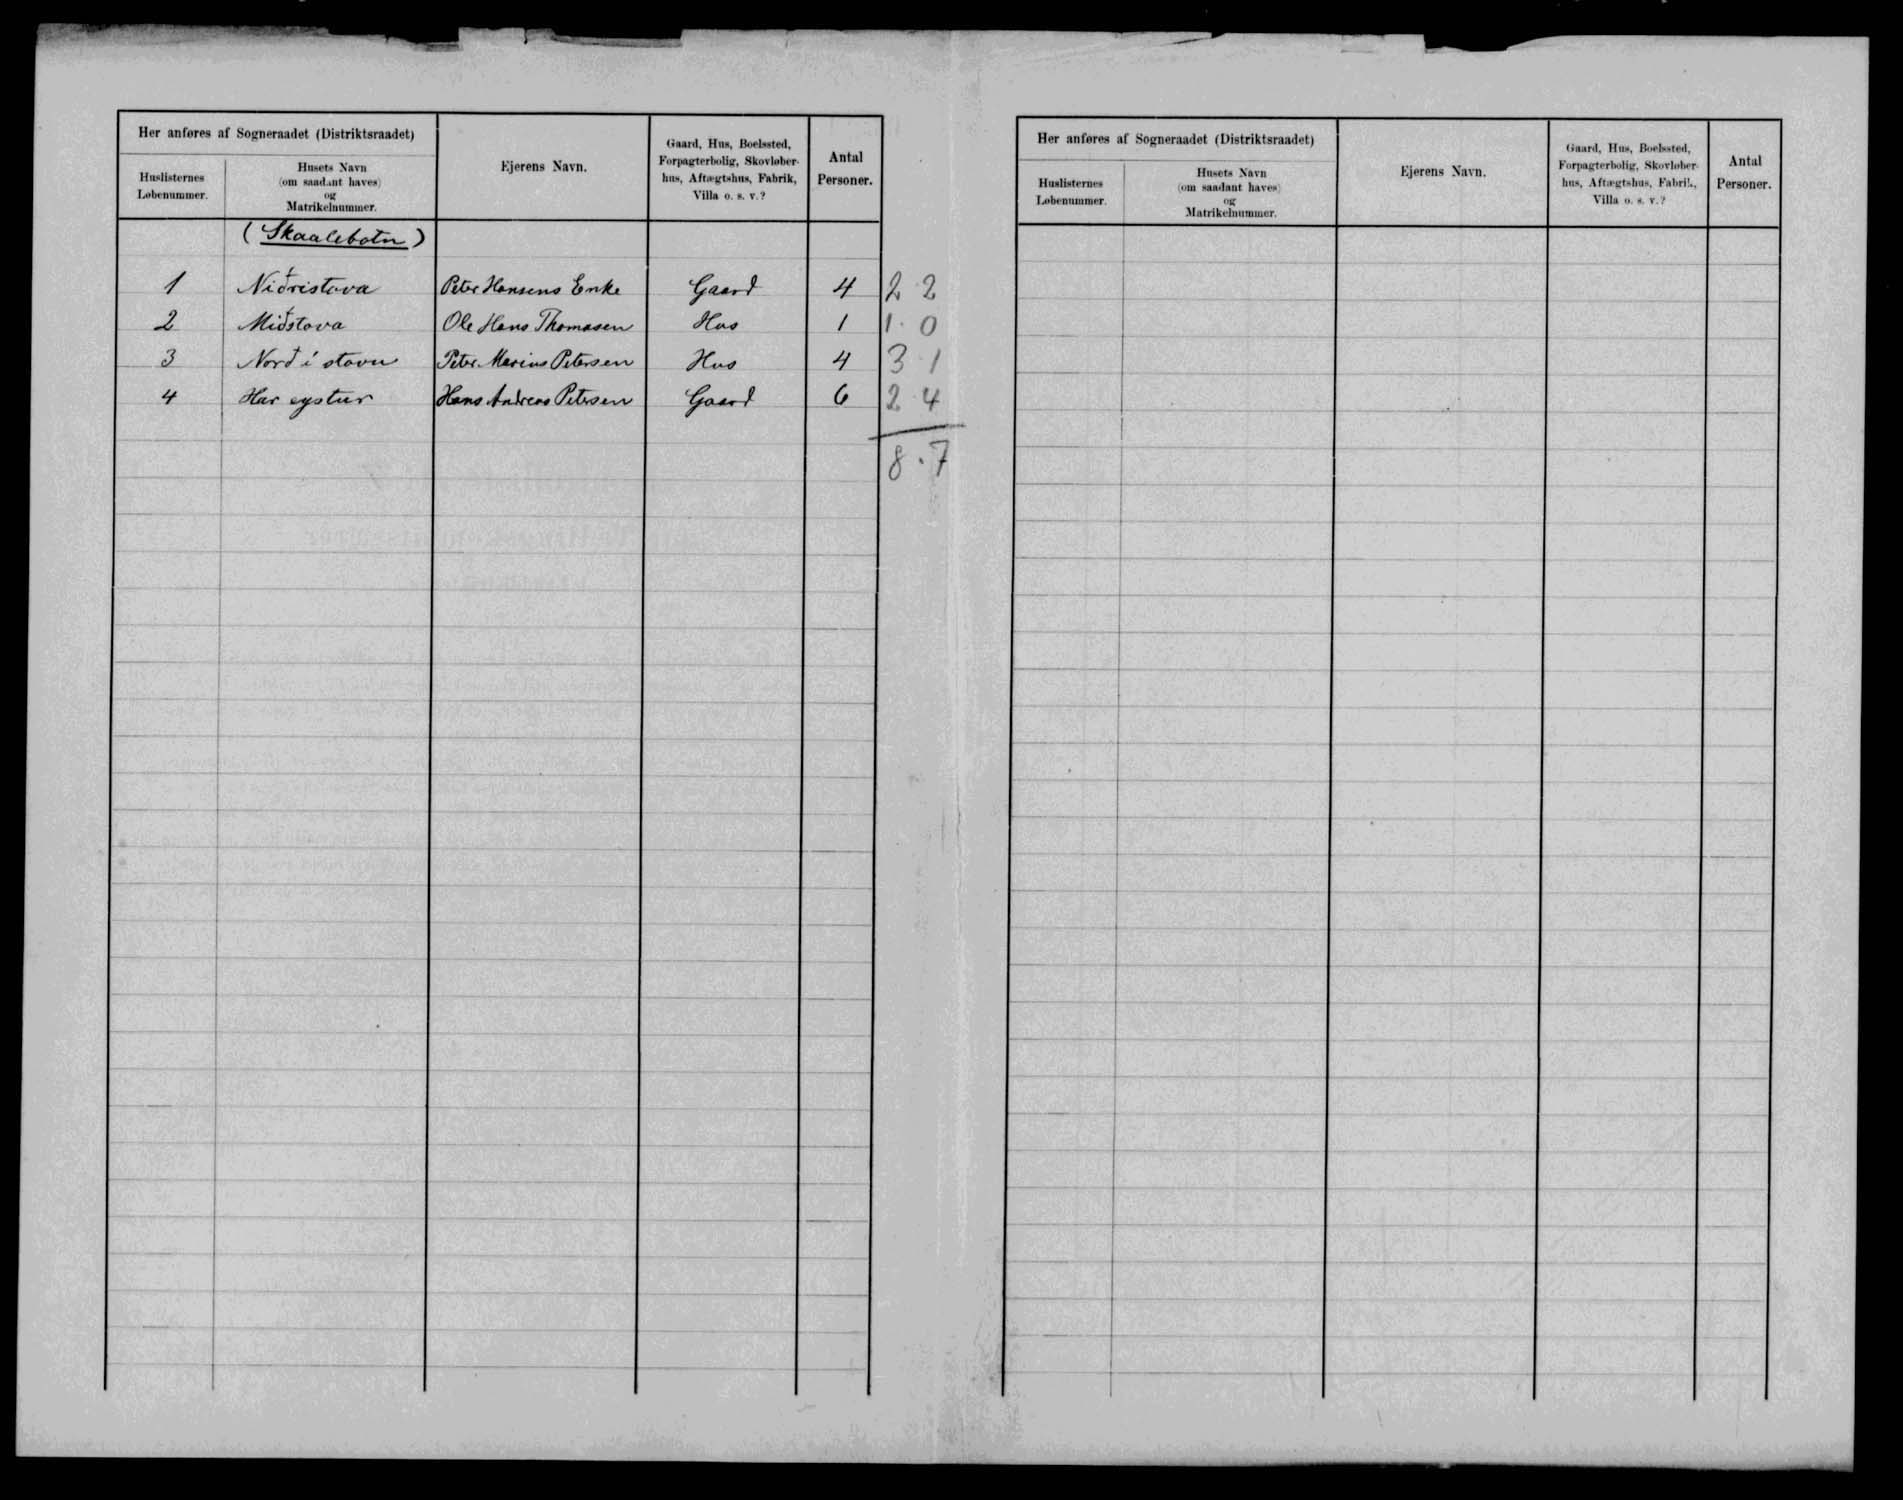 Her anføres af Sogneraadet (Distriktsraadet)
Huslisternes Løbenummer.
Husets Navn
(om saadant haves)
og
Matrikelnummer.
Ejerens Navn.
Gaard, Hus, Boelssted,
Forpagterbolig, Skovløber-
hus, Aftægtshus, Fabrik,
Villa o. s. v.?
Antal
Personer.
(Skaalebotn)
1 Niðristova Peter Hansens Enke Gaard 4 2 2
2 Miðstova Ole Hans Thomasen Hus 1 1. 0
3 Norð í stovu Peter Marius Petersen Hus 4 3 1
4 Har eystur Hans Andreas Petersen Gaard 6 2 4
8.7
Her anføres af Sogneraadet (Distriktsraadet)
Huslisternes Løbenummer.
Husets Navn
(om saadant haves)
og
Matrikelnummer.
Ejerens Navn.
Gaard, Hus, Boelssted,
Forpagterbolig, Skovløber-
hus, Aftægtshus, Fabrik,
Villa o. s. v.?
Antal
Personer.